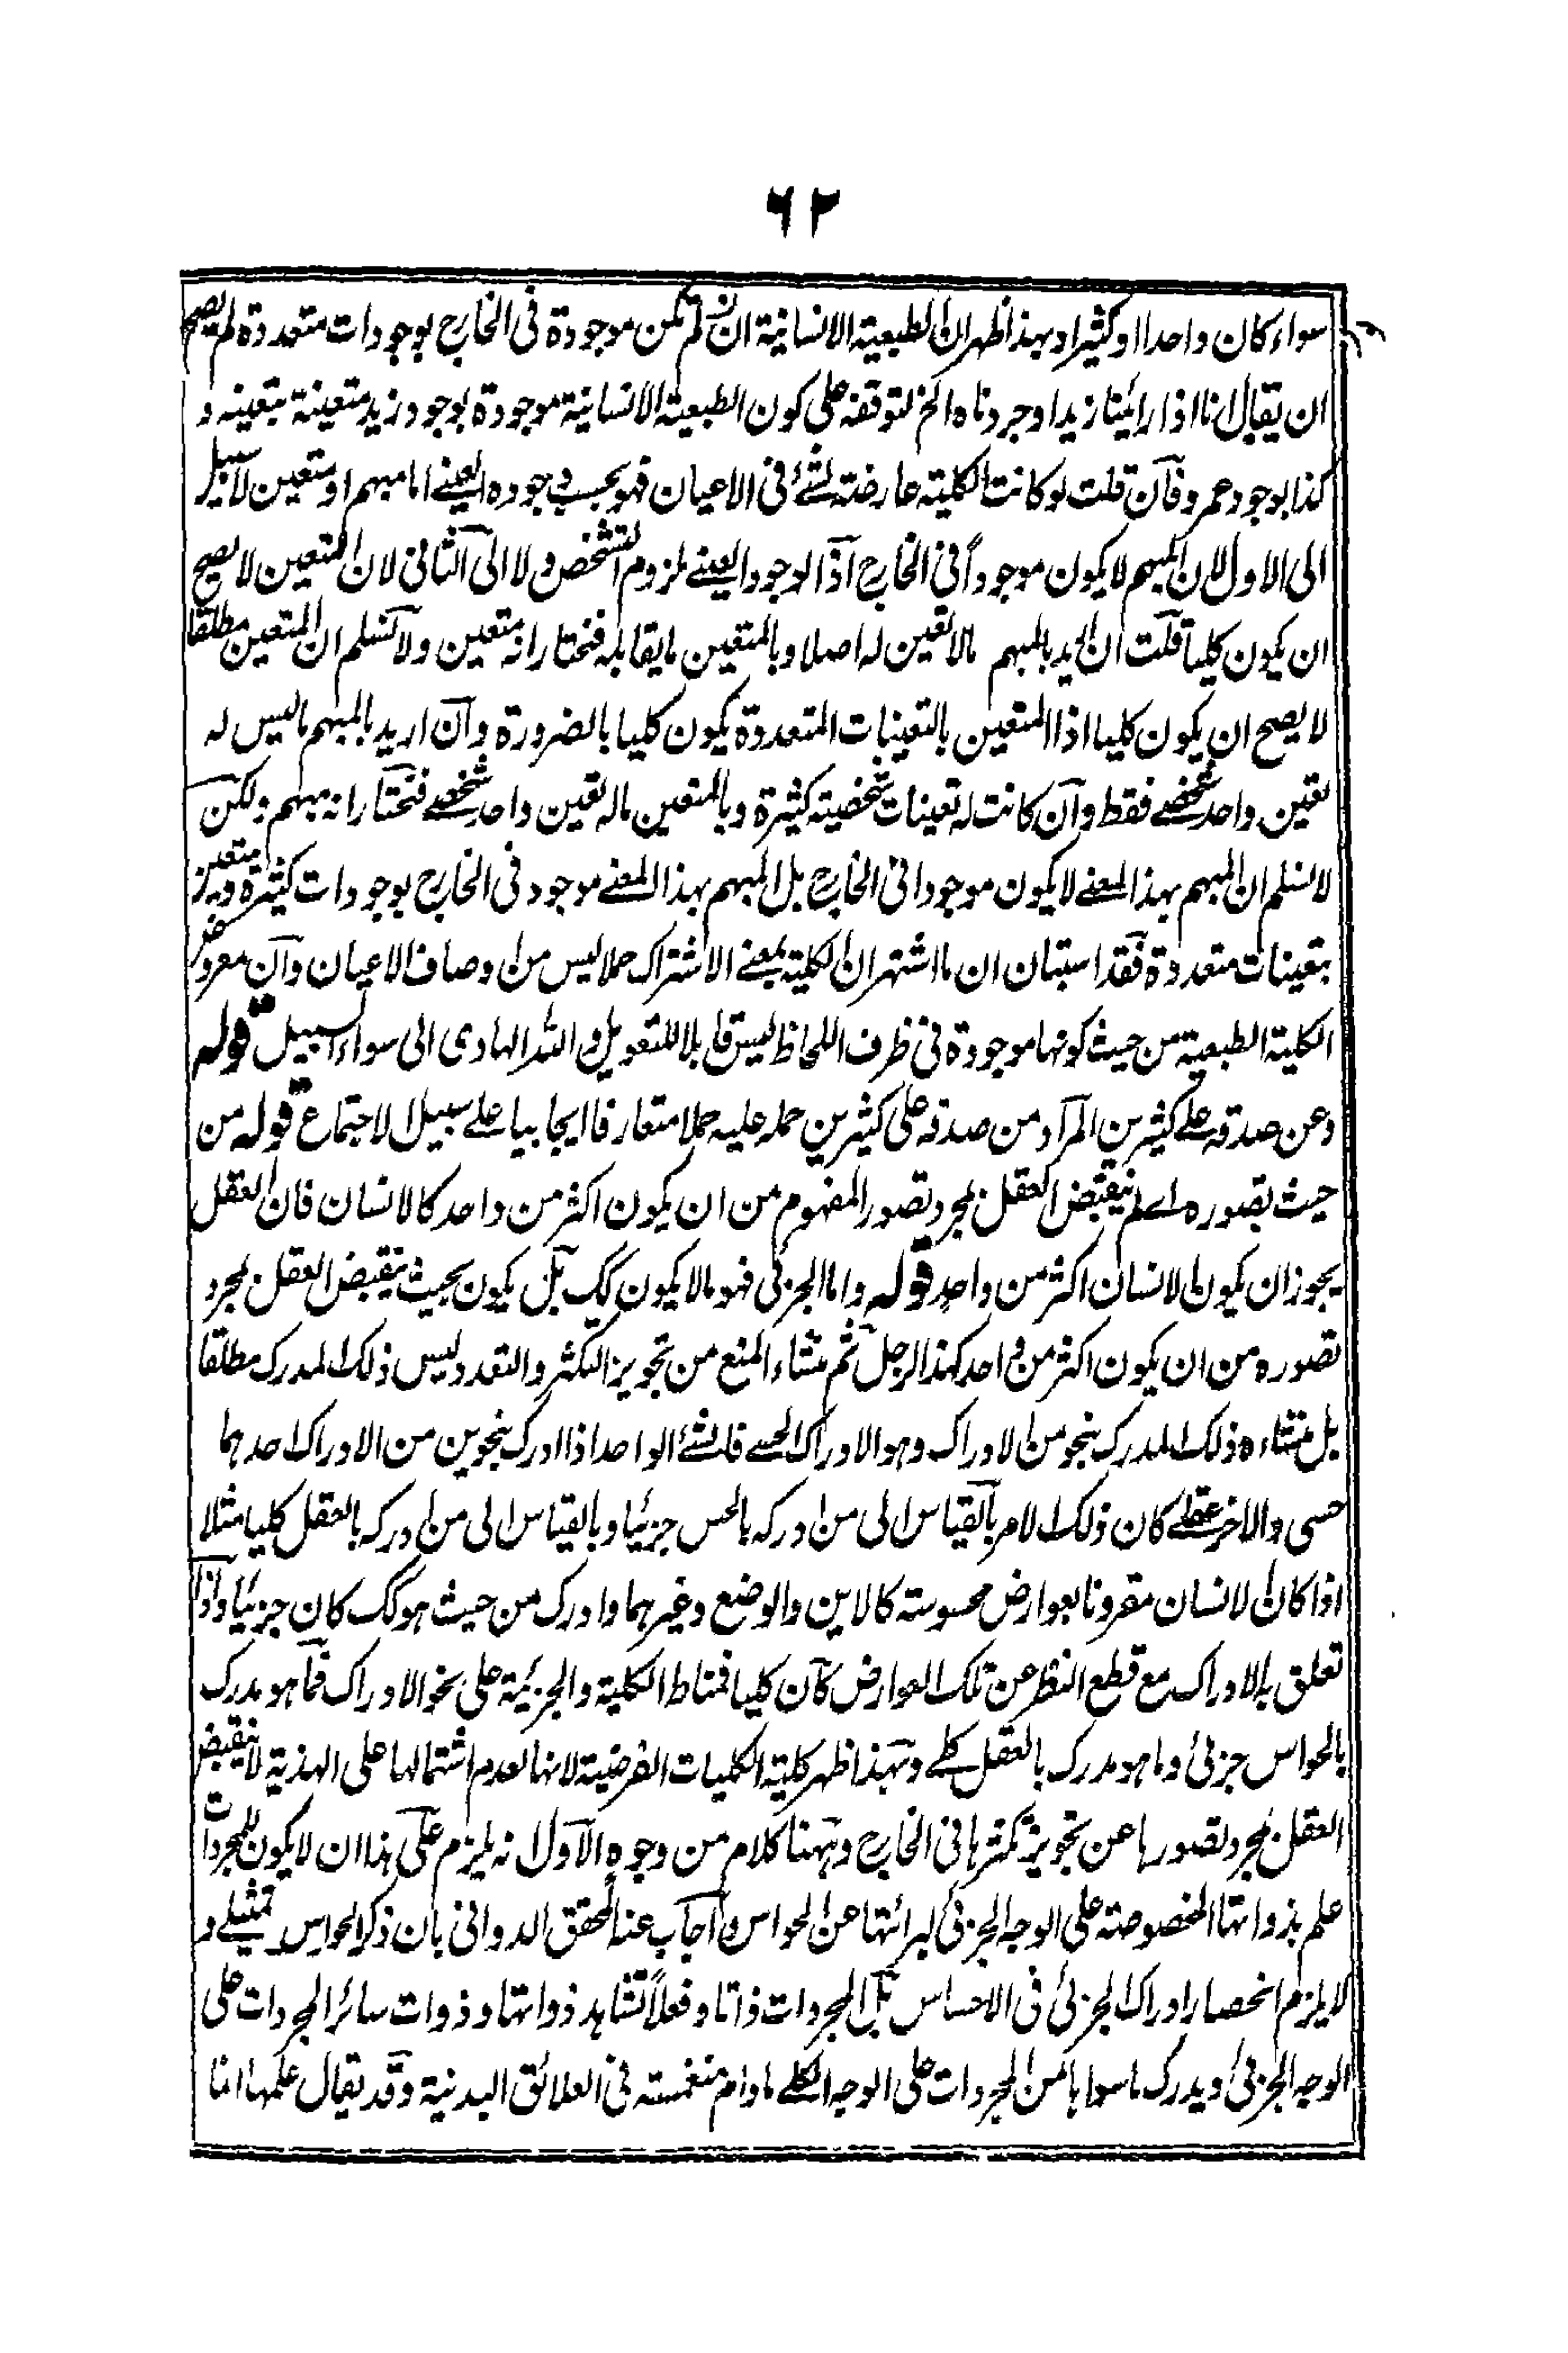 ٦٢
سواء كان واحدا او كثيرا وبهذا ظهر ان الطبعية الانسانية ان لم تكن موجودة فى الخارج بوجودات متعددة لم يصح
ان يقال انا اذا رأينا زيدا وجردناه الخ لتوقفه على كون الطبعية الانسانية موجودة بوجود زيد متعينة بتعينه و
كذا بوجود عمرو فآن قلت لو كانت الكلية عارضة لشئ فى الاعيان فهو بحسب وجوده العينے اما مبهم او متعين لا سبيل
الى الاول لان المبهم لا يكون موجوداً فى الخارج اذ الوجود العينے ملزوم التشخص ولا الى الثانى لان المتعين لا يصح
ان يكون كليا قلت ان اريد بالمبهم ما لا تعين له اصلا وبالمتعين ما يقابله فنختار انه متعين ولا نسلم ان المتعين مطلقا
لا يصح ان يكون كليا اذ المتعين بالتعينات المتعددة يكون كليا بالضرورة وآن اريد بالمبهم ما ليس له
تعين واحد شخصے فقط وآن كانت له تعينات شخصية كثيرة وبالمتعين ماله تعين واحد شخصے فنختار انه مبهم ولكن
لا نسلم ان المبهم بهذا المعنے لا يكون موجودا فى الخارج بل المبهم بهذا المعنے موجود فى الخارج بوجودات كثيرة متعين
بتعينات متعددة فقد استبان ان ما اشتهر ان الكلية بمعنے الاشتراك حملا ليس من اوصاف الاعيان وآن معروض
الكلية الطبعية من حيث كونها موجودة فى ظرف اللحاظ ليس قابلا للتعويل والله الهادى الى سواء السبيل قوله
وعن صدقه علے كثيرين المرآد من صدقه على كثيرين حمله عليه حملا متعارفا ايجابيا علے سبيل الاجتماع قوله من
حيث تصوره اے لم ينقبض العقل بمجرد تصور المفهوم من ان يكون اكثر من واحد كالانسان فان العقل
يجوز ان يكون الانسان اكثر من واحد قوله واما الجزئى فهو ما لا يكون كك بل يكون بحيث ينقبض العقل بمجرد
تصوره من ان يكون اكثر من واحد كهذا الرجل ثم منشاء المنع من تجويز التكثر والتعدد ليس ذلك المدرك مطلقا
بل منشاءه ذلك المدرك بنحو من الادراك وهو الادراك الحسے فالشئ الواحد اذا ادرك بنحوين من الادراك احدهما
حسى والاخر عقلے كان ذلك الامر بالقياس الى من ادركه بالحس جزئيا وبالقياس الى من ادركه بالعقل كليا مثلا
اذا كان الانسان مقرونا بعوارض محسوسة كالاين والوضع وغيرهما وادرك من حيث هو كك كان جزئيا واذا
تعلق به الادراك مع قطع النظر عن تلك العوارض كان كليا فمناط الكلية والجزئية على نحو الادراك فما هو مدرك
بالحواس جزئى وما هو مدرك بالعقل كلے وبهذا ظهر كلية الكليات الفرضية لانها لعدم اشتمالها على الهذية لا ينقبض
العقل بمجرد تصورها عن تجويز تكثرها فى الخارج وههنا كلام من وجوه الآول انه يلزم على هذا ان لا يكون للمجردات
علم بذواتها المخصوصة على الوجه الجزئى لبرائتها عن الحواس وآجاب عنه المحقق الدوانى بان ذكر الحواس تمثيلے و
لا يلزم انحصار ادراك الجزئى فى الاحساس بل المجردات ذاتا وفعلاً تشاهد ذواتها وذوات سائر المجردات على
الوجه الجزئى ويدرك ما سواها من المجردات على الوجه الكلے ما دام منغمسة فى العلائق البدنية وقد يقال علمها انما